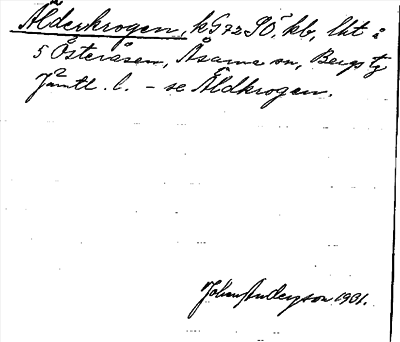 Älderkrogen, k G72 SÖ. kb, lht å
5 Österåsen, Åsarne sn, Bergs tg
Jämtl. l. – se Äldkrogen.
Johan Anderson 1901.